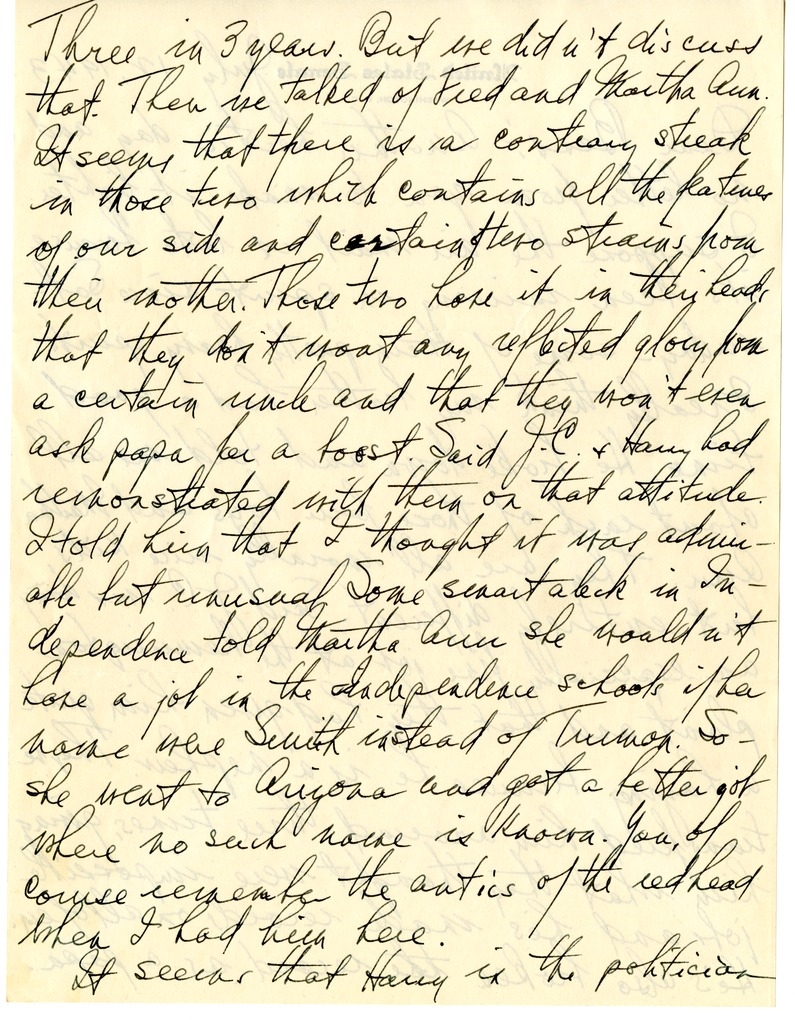 Three in 3 years. But we didn't discuss
that. Then we talked of Fred and Martha Ann.
It seems that there is a contrary streak
in those two which contains all the features
of our side and certain two strains from
their mother. Those two have it in their heads
that they don't want any reflected glory from
a certain uncle and that they won't even
ask papa for a boost. Said J.C. & Harry had
remonstrated with them on that attitude.
I told him that I thought it was admir-
able but unusual Some smart aleck in In-
dependence told Martha Ann she wouldn't
have a job in the Independence schools if her
name were Smith instead of Truman. So-
she went to Arizona and got a better job
where no such name is known. You, of
course remember the antics of the redhead
when I had him here.
It seems that Harry is the politician